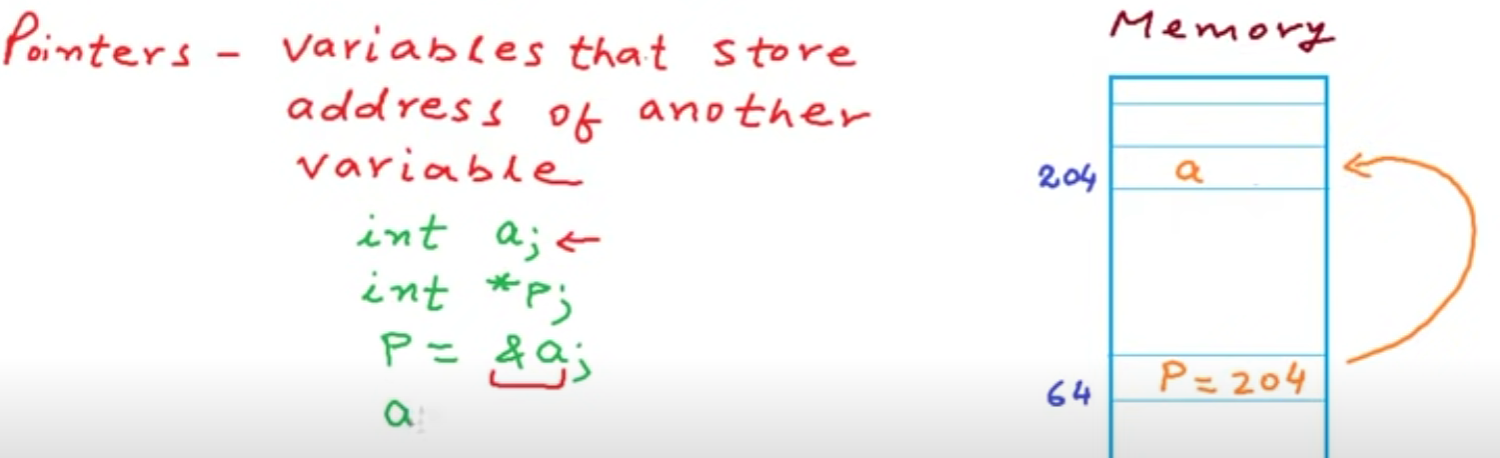 Pointers - variables that store
address of another
variable
int a; ←
int *p;
P = &a;
a
Memory
204 a
64 P = 204